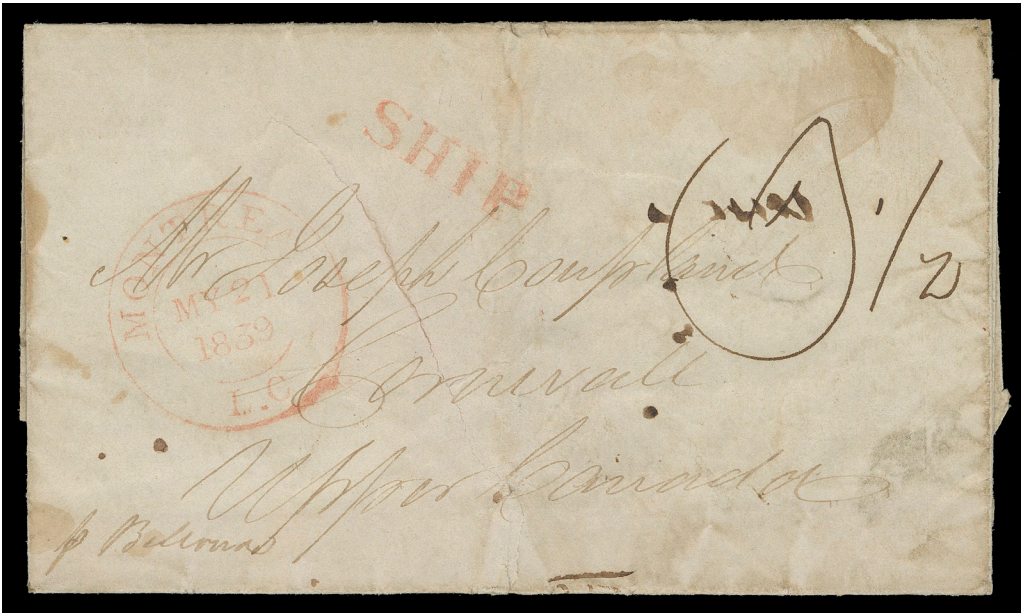 SHIP
MONTREAL
MY 21
1839
L.C
1/2
Mr Joseph Coupland
Cornwall
Upper Canada
p Bellona